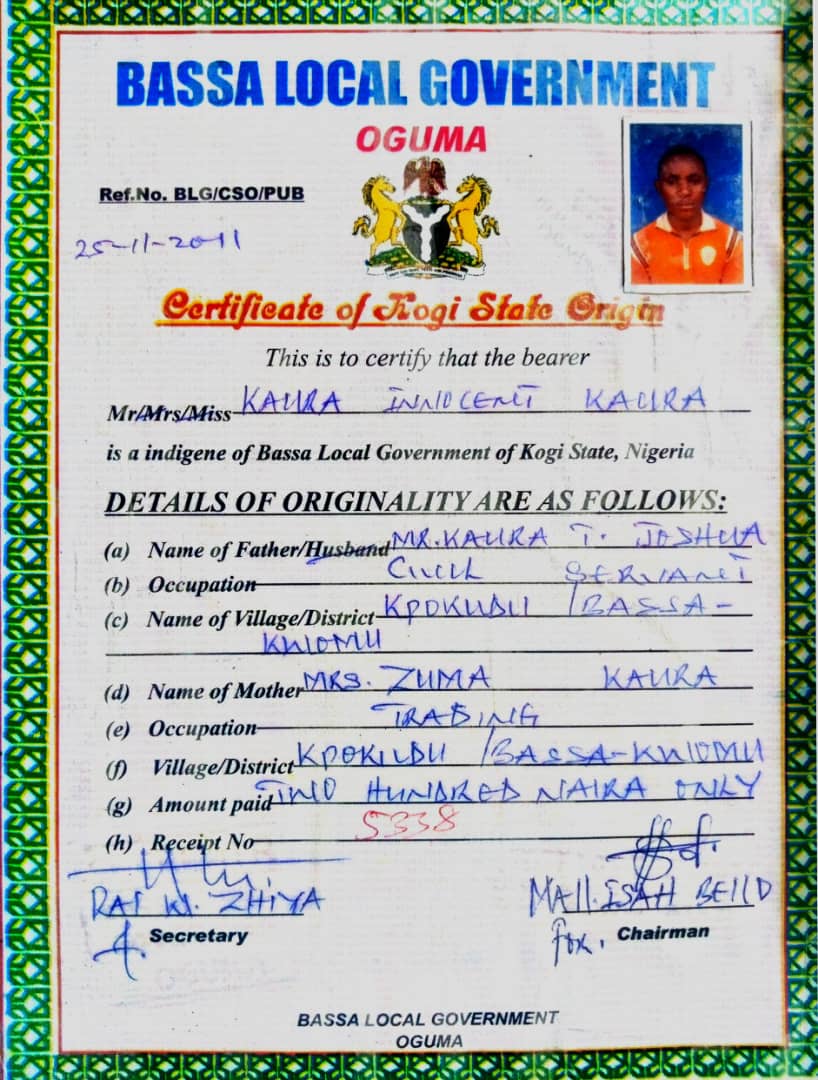 BASSA LOCAL GOVERNMENT
OGUMA
Ref.No. BLG/CSO/PUB
25-11-2011
Certificate of Kogi State Origin
This is to certify that the bearer
Mr/Mrs/Miss KAURA INNOCENT KAURA
is a indigene of Bassa Local Government of Kogi State, Nigeria
DETAILS OF ORIGINALITY ARE AS FOLLOWS:
(a) Name of Father/Husband MR. KAURA T. JOSHUA
(b) Occupation CIVIL SERVANT
(c) Name of Village/District KPOKUDU /BASSA-
KWOMU
(d) Name of Mother MRS. ZUMA KAURA
(e) Occupation TRADING
(f) Village/District KPOKUDU /BASSA-KWOMU
(g) Amount paid TWO HUNDRED NAIRA ONLY
(h) Receipt No 5338
W. ZHIYA
MALL. ISAH
Secretary
for. Chairman
BASSA LOCAL GOVERNMENT
OGUMA